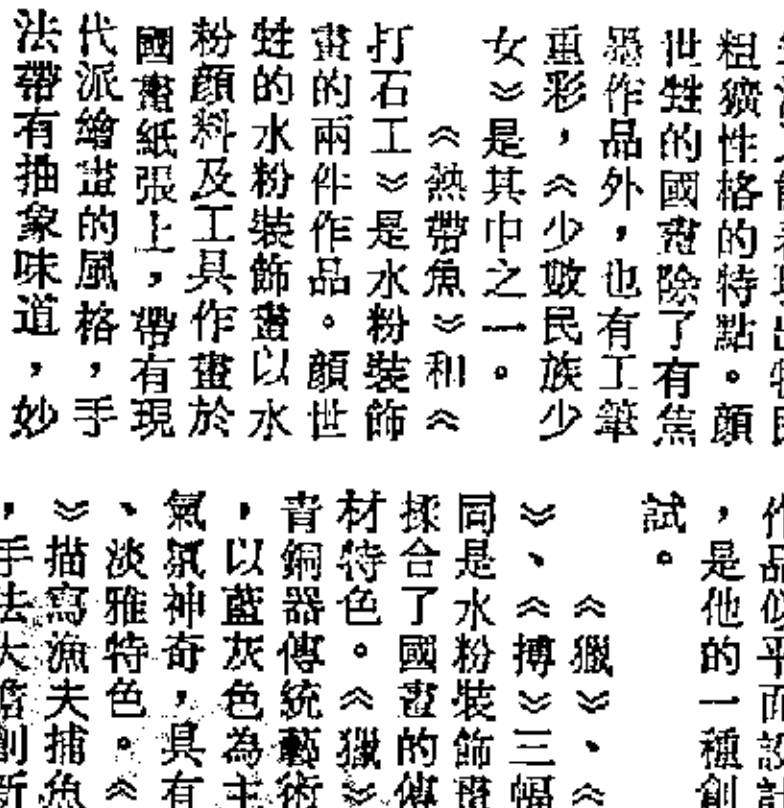 粗獷性格的特點。顏
世甡的國畫除了有焦
墨作品外，也有工筆
重彩，《少數民族少
女》是其中之一。
《熱帶魚》和《
打石工》是水粉裝飾
畫的兩件作品。顏世
甡的水粉裝飾畫以水
粉顏料及工具作畫於
國畫紙張上，帶有現
代派繪畫的風格，手
法帶有抽象味道，妙
，是他的一種創
試。
《獵》、《
》、《搏》三幅
同是水粉裝飾畫
揉合了國畫的傳
材特色。《獵》
青銅器傳統藝術
，以藍灰色為主
氣氛神奇，具有
、淡雅特色。《
》描寫漁夫捕魚
，手法大膽創新